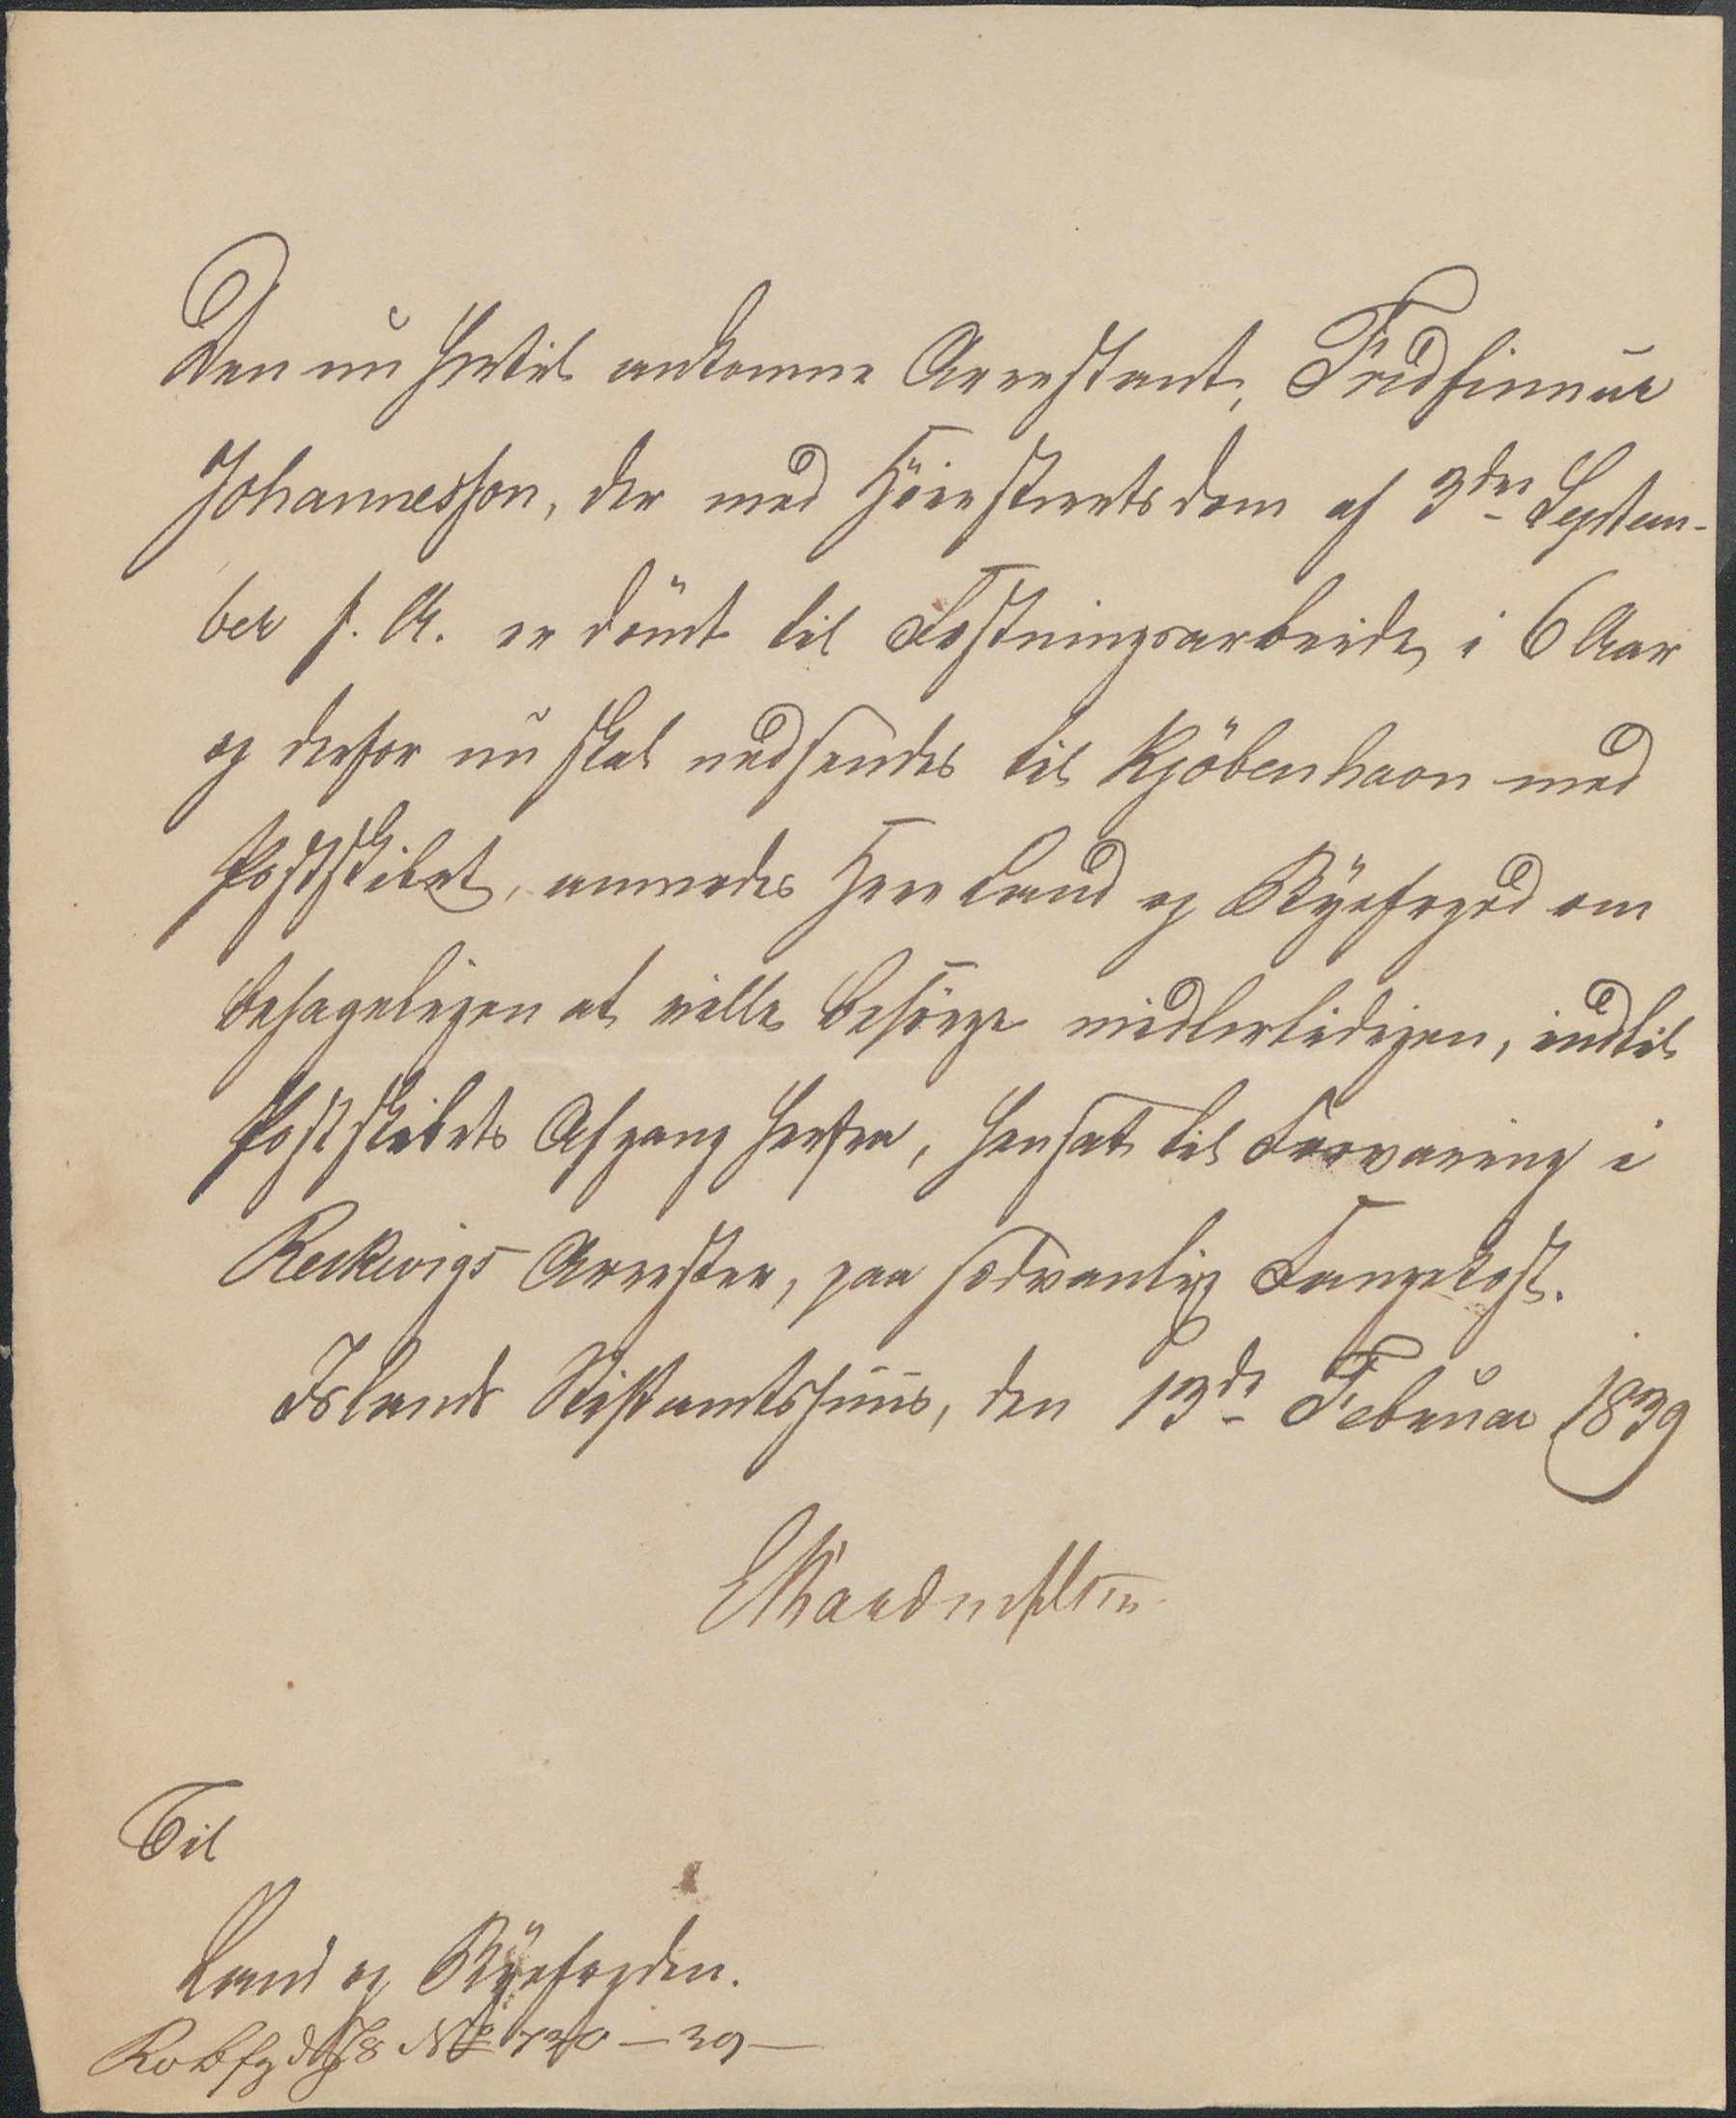 Den nu hertil ankomne Arrestant, Fridfinnur
Johannesson, der med Höiesterets dom af 3die Septem-
ber f. A. er dömt til Fæstningsarbeide i 6 Aar
og derfor nu skal nedsendes til Kjöbenhavn med
Postskibet, anmodes Herr Land og Byefoged om
behageligen at ville besörge midlertidigen, indtil
Postskibets Afgang herfra, hensat til Forvaring i
Reikevigs Arrester, paa sædvanlig Fangekost.
Islands Stiftamtshuus, den 13de Februar 1839
Til
Land og Byefogden.